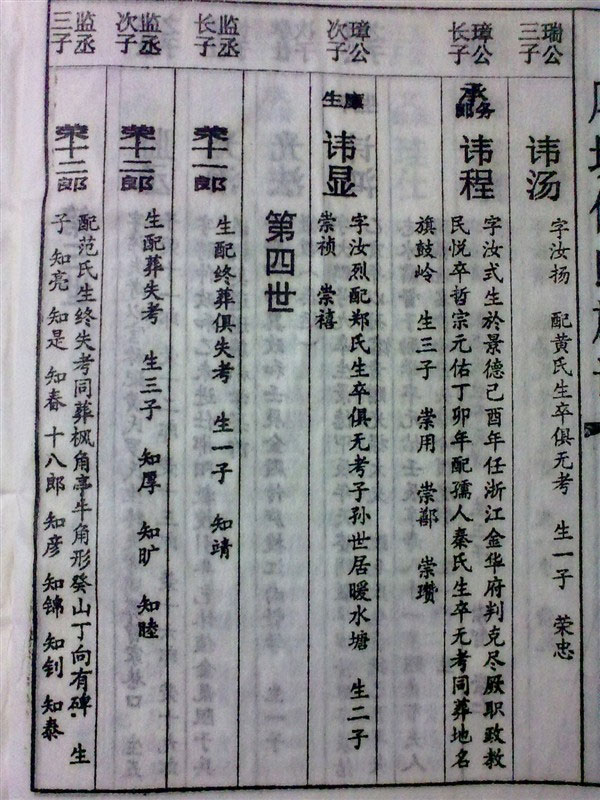 瑞公
三子
讳汤
字汝扬 配黄氏生卒俱无考 生一子 荣忠
璋公
长子
承务郎
讳程
字汝式生於景德己酉年任浙江金华府判克尽厥职政教
民悦卒哲宗元佑丁卯年配孺人秦氏生卒无考同葬地名
旗鼓岭 生三子 崇用 崇鄯 崇瓒
璋公
次子
庠生
讳显
字汝烈配郑氏生卒俱无考子孙世居暖水塘 生二子
崇祯 崇禧
第四世
监丞
长子
荣十一郎
生配终葬俱失考 生一子 知靖
监丞
次子
荣十二郎
生配葬失考 生三子 知厚 知旷 知睦
监丞
三子
荣十三郎
配范氏生终失考同葬枫角亭牛角形癸山丁向有碑 生
子 知亮 知是 知春 十八郎 知彦 知锦 知钊 知泰